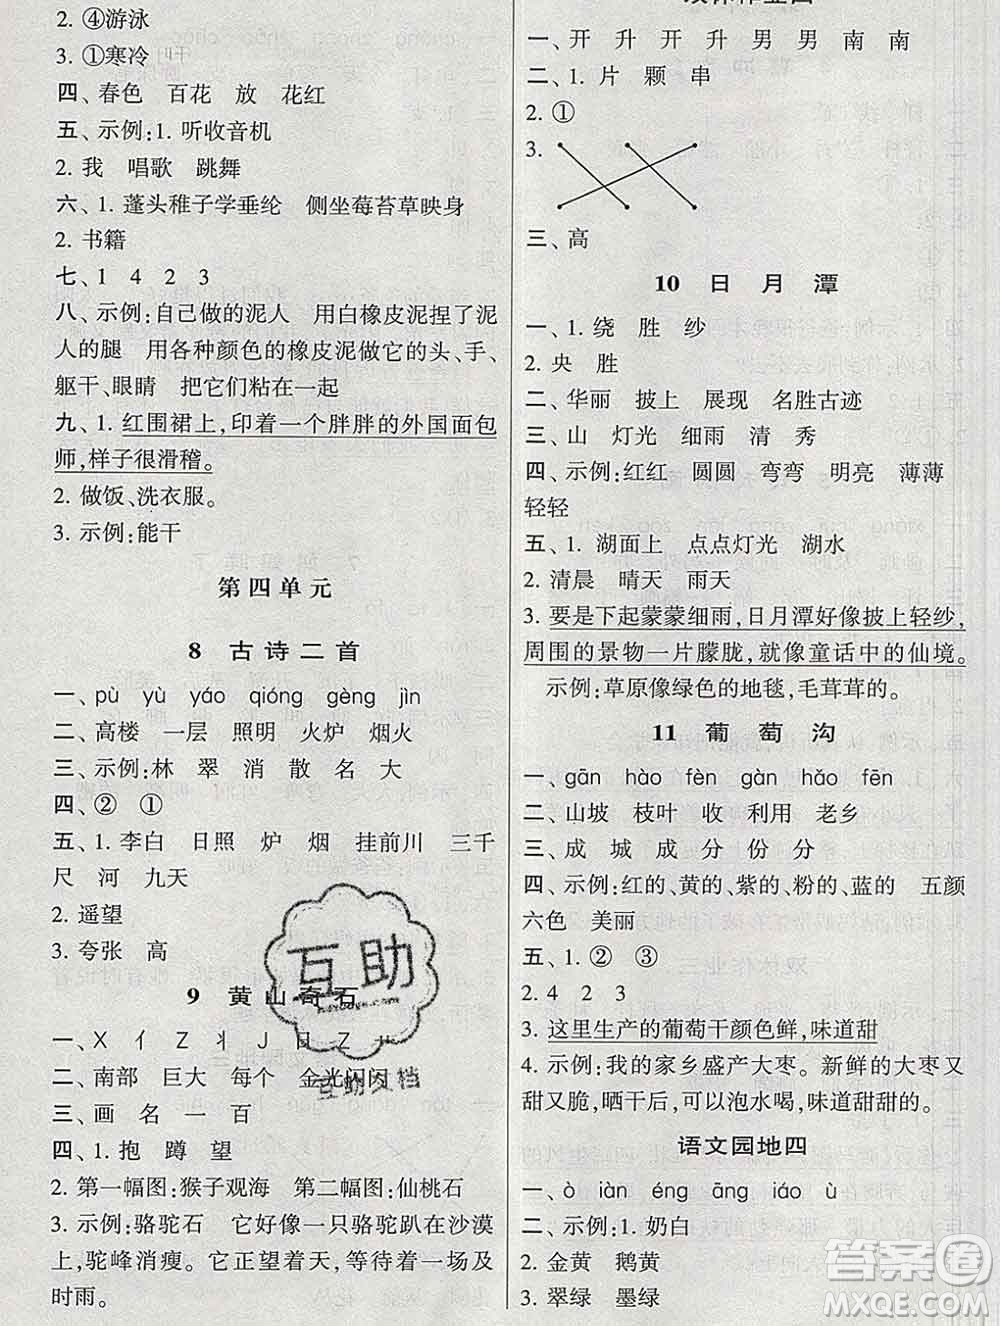 2. ④游泳
3. ①寒冷
四、春色 百花 放 花红
五、示例:1. 听收音机
2. 我 唱歌 跳舞
六、1. 蓬头稚子学垂纶 侧坐莓苔草映身
2. 书籍
七、1 4 2 3
八、示例:自己做的泥人 用白橡皮泥捏了泥
人的腿 用各种颜色的橡皮泥做它的头、手、
躯干、眼睛 把它们粘在一起
九、1. 红围裙上,印着一个胖胖的外国面包
师,样子很滑稽。
2. 做饭、洗衣服。
3. 示例:能干
第四单元
8 古诗二首
一、pù yù yáo qióng gèng jìn
二、高楼 一层 照明 火炉 烟火
三、示例:林 翠 消 散 名 大
四、② ①
五、1. 李白 日照 炉 烟 挂前川 三千
尺 河 九天
2. 遥望
3. 夸张 高
9 黄山奇石
一、X 亻 Z 丬 J 日 Z
二、南部 巨大 每个 金光闪闪
三、画 名 一 百
四、1. 抱 蹲 望
2. 第一幅图:猴子观海 第二幅图:仙桃石
3. 示例:骆驼石 它好像一只骆驼趴在沙漠
上,驼峰消瘦。它正望着天,等待着一场及
时雨。
一、开 升 开 升 男 男 南 南
二、1. 片 颗 串
2. ①
3.
三、高
10 日月潭
一、1. 绕 胜 纱
2. 央 胜
二、华丽 披上 展现 名胜古迹
三、山 灯光 细雨 清 秀
四、示例:红红 圆圆 弯弯 明亮 薄薄
轻轻
五、1. 湖面上 点点灯光 湖水
2. 清晨 晴天 雨天
3. 要是下起蒙蒙细雨,日月潭好像披上轻纱,
周围的景物一片朦胧,就像童话中的仙境。
示例:草原像绿色的地毯,毛茸茸的。
11 葡萄沟
一、gān hào fèn gàn hǎo fēn
二、山坡 枝叶 收 利用 老乡
三、成 城 成 分 份 分
四、示例:红的、黄的、紫的、粉的、蓝的 五颜
六色 美丽
五、1. ① ② ③
2. 4 2 3
3. 这里生产的葡萄干颜色鲜,味道甜
4. 示例:我的家乡盛产大枣。新鲜的大枣又
甜又脆,晒干后,可以泡水喝,味道甜甜的。
语文园地四
一、ò iàn éng āng iáo ù
二、示例:1. 奶白
2. 金黄 鹅黄
3. 翠绿 墨绿
互助
互助文档
答案圈
MXQE.COM